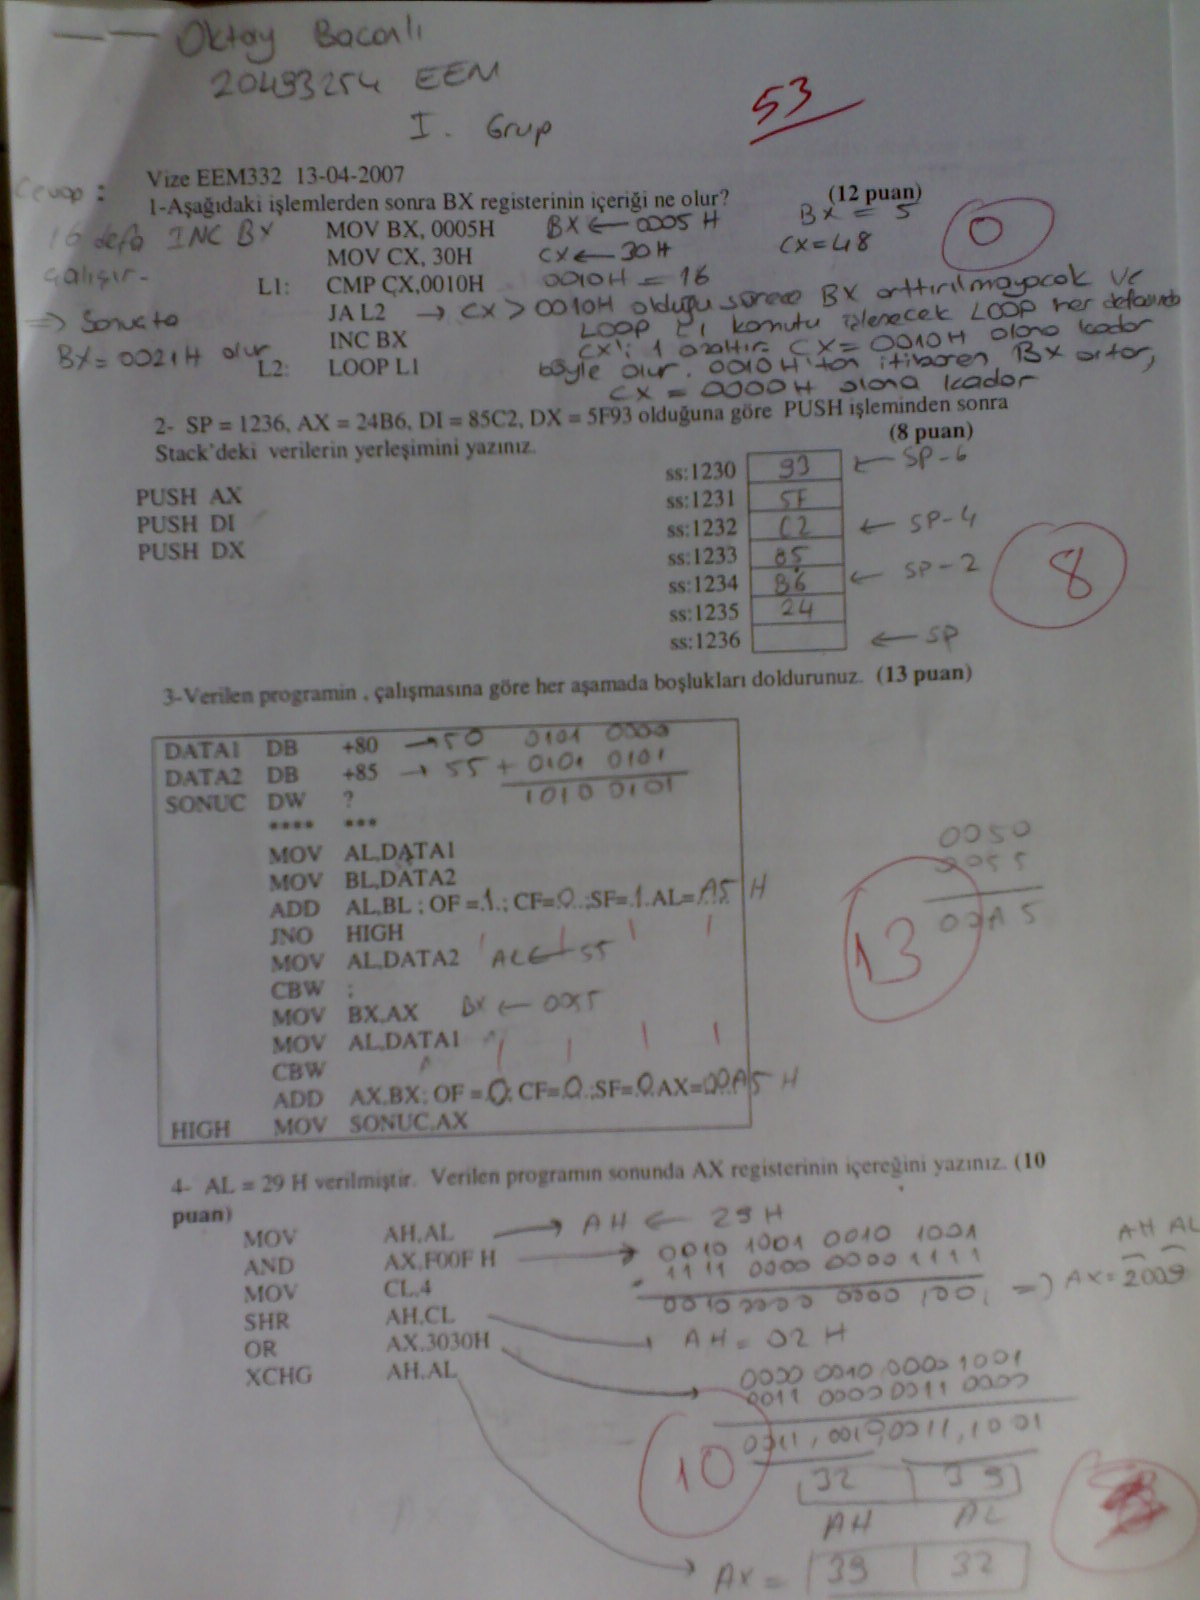 Oktay Bacanlı
20493254 EEM
I. Grup
53
Vize EEM332 13-04-2007
Cevap :
1-Aşağıdaki işlemlerden sonra BX registerinin içeriği ne olur? (12 puan)
16 defa INC BX
çalışır.
=> Sonuçta
BX=0021H olur
MOV BX, 0005H BX ← 0005 H BX = 5
MOV CX, 30H CX ← 30H CX=48
0
L1: CMP CX,0010H 0010H = 16
JA L2 → CX > 0010H olduğu sürece BX arttırılmayacak ve
LOOP L1 komutu izlenecek LOOP her defasında
INC BX CX'i 1 azaltır. CX=0010H olana kadar
L2: LOOP L1 böyle olur. 0010H'tan itibaren BX artar,
CX = 0000H olana kadar
2- SP = 1236, AX = 24B6, DI = 85C2, DX = 5F93 olduğuna göre PUSH işleminden sonra
Stack'deki verilerin yerleşimini yazınız. (8 puan)
PUSH AX
PUSH DI
PUSH DX
ss:1230 93 ← SP-6
ss:1231 5F
ss:1232 C2 ← SP-4
ss:1233 85
ss:1234 B6 ← SP-2
ss:1235 24
ss:1236 ← SP
8
3-Verilen programin , çalışmasına göre her aşamada boşlukları doldurunuz. (13 puan)
DATA1 DB +80 → 50 0101 0000
DATA2 DB +85 → 55 + 0101 0101
SONUC DW ? 1010 0101
**** ***
MOV AL,DATA1
MOV BL,DATA2
ADD AL,BL ; OF =.1.; CF=.0..;SF=.1. AL=.A5. H
JNO HIGH
MOV AL,DATA2 AL ← 55
CBW ;
MOV BX,AX BX ← 0055
MOV AL,DATA1
CBW
ADD AX,BX; OF =.0.; CF=.0.;SF=.0.AX=00A5 H
HIGH MOV SONUC,AX
0050
0055
00A5
13
4- AL = 29 H verilmiştir. Verilen programın sonunda AX registerinin içereğini yazınız. (10
puan)
MOV AH,AL → AH ← 29 H
AND AX,F00F H → 0010 1001 0010 1001
1111 0000 0000 1111
0010 0000 0000 1001 => AX=2009
AH AL
MOV CL,4
SHR AH,CL → AH = 02 H
OR AX,3030H → 0000 0010 0000 1001
0011 0000 0011 0000
0011,0010,0011,1001
XCHG AH,AL
32 39
AH AL
10
AX = 39 32